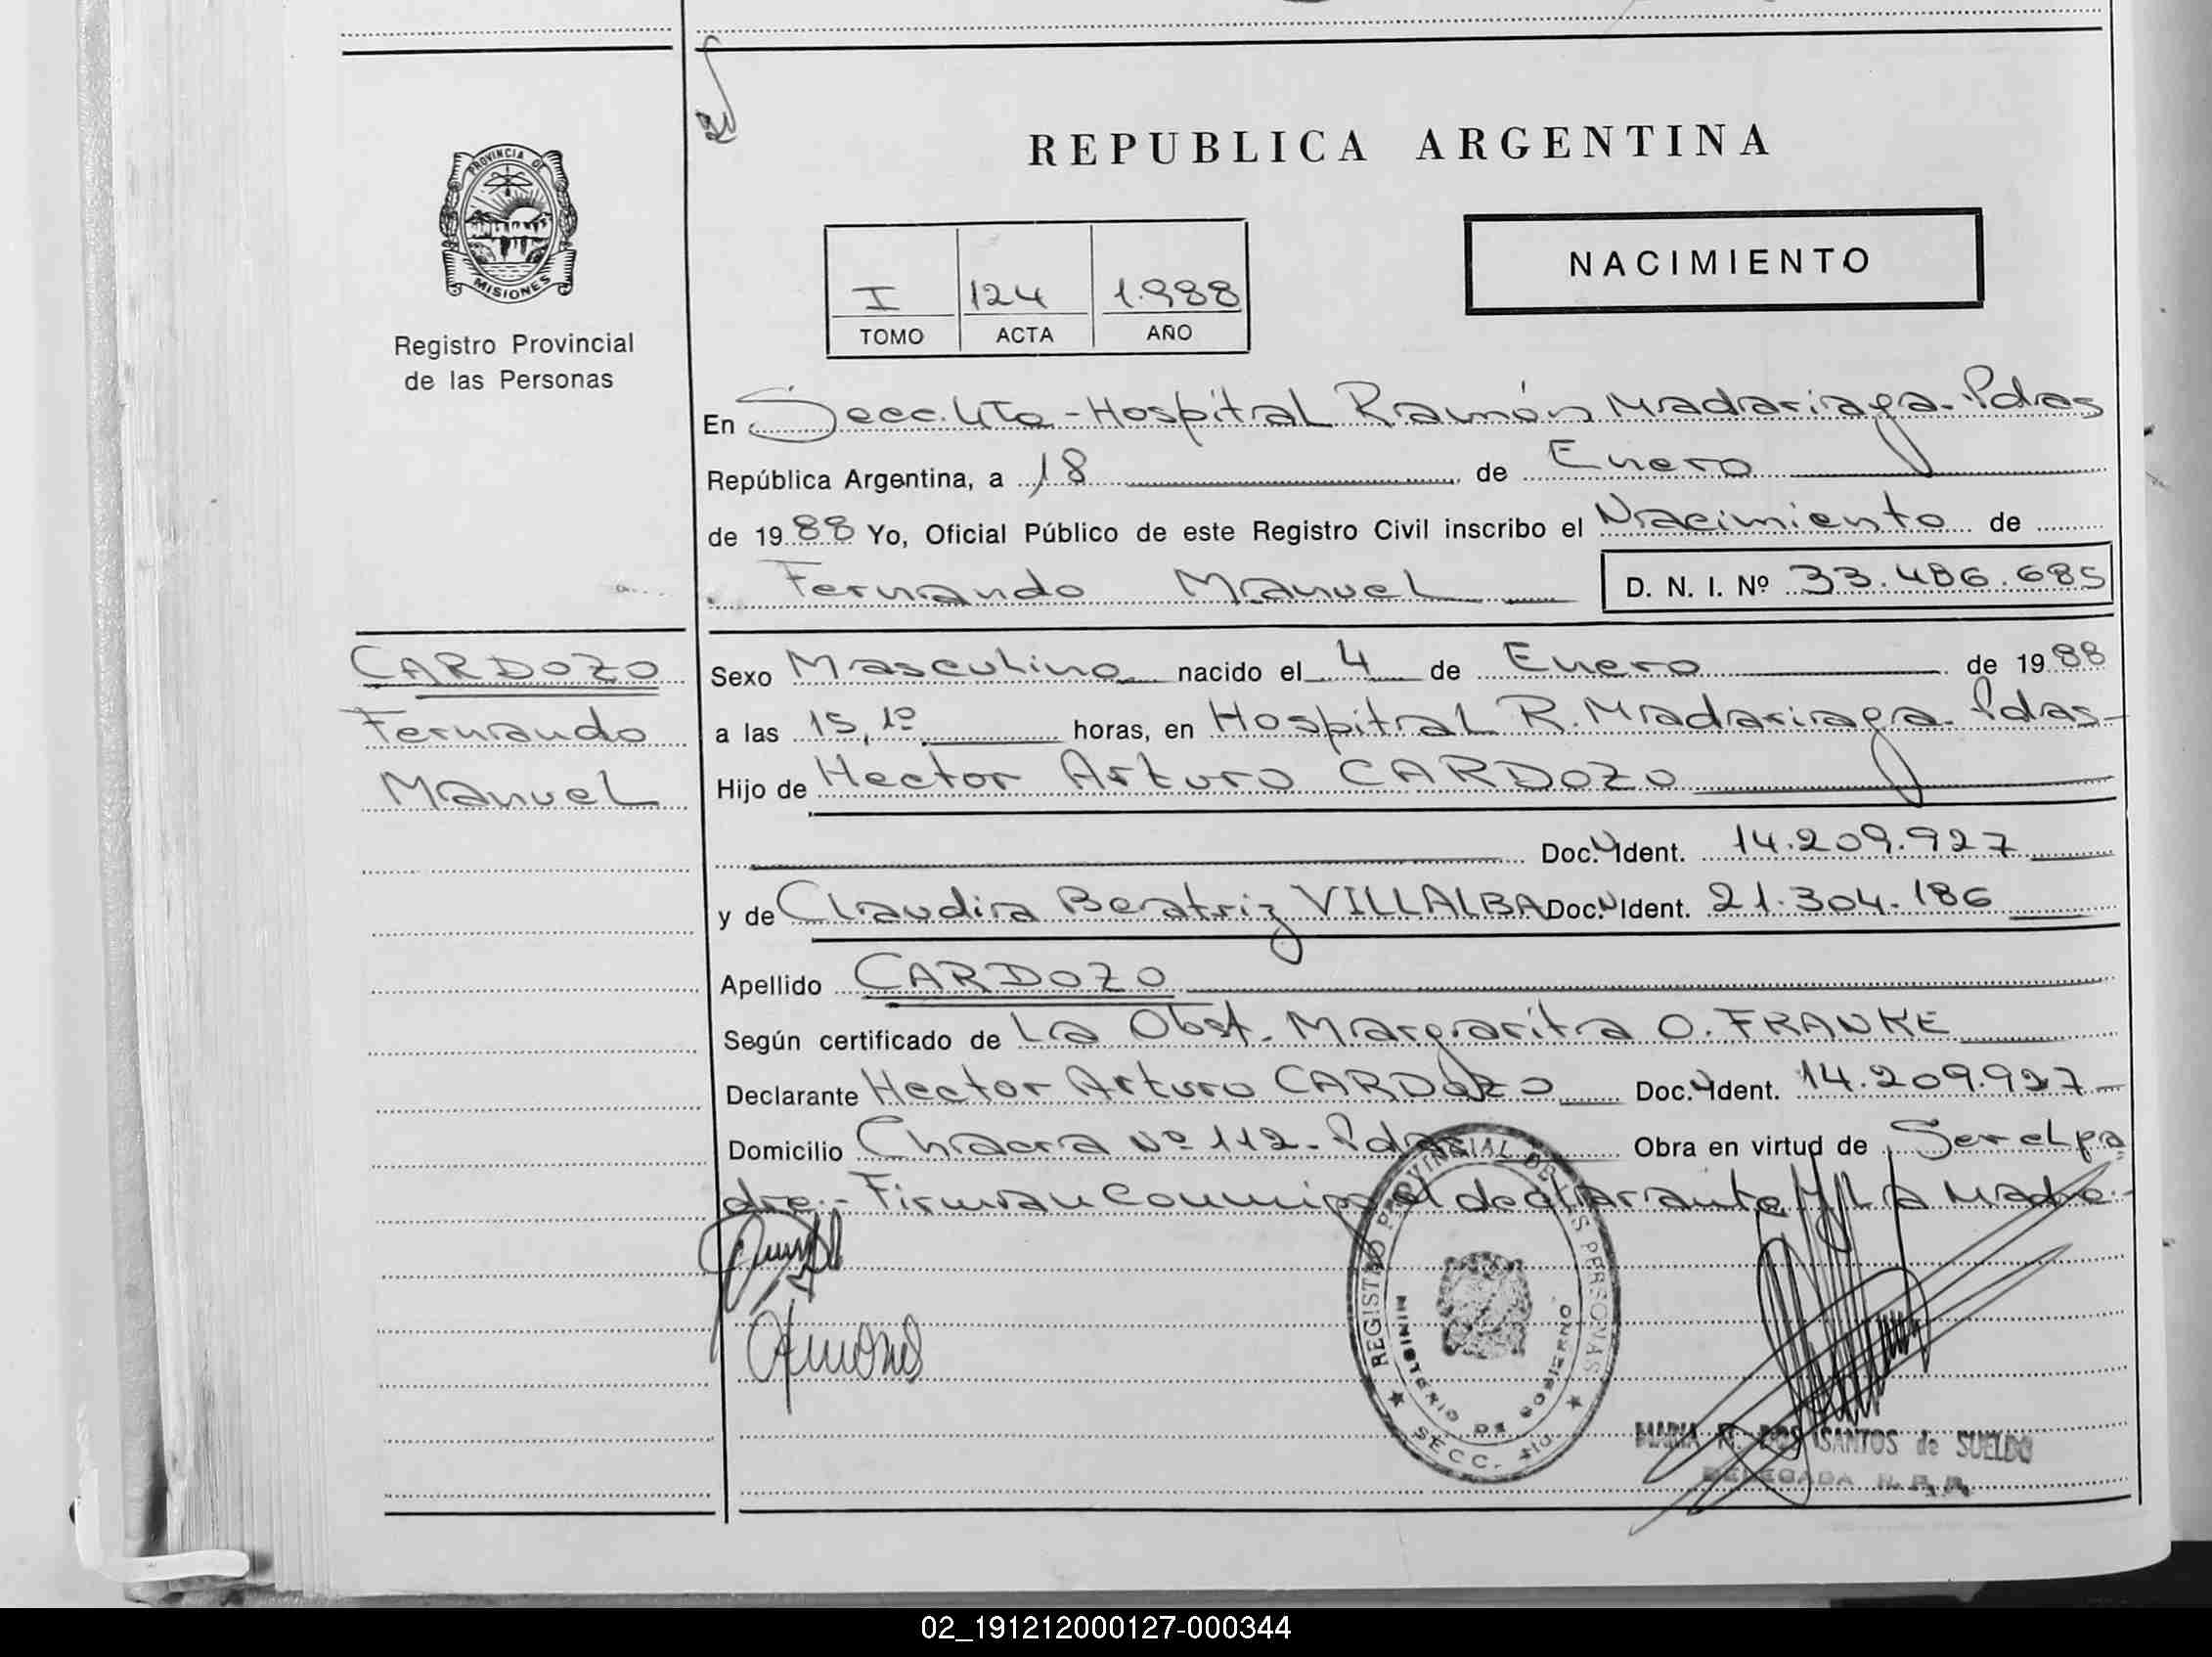 REPUBLICA ARGENTINA
PROVINCIA DE
MISIONES
Registro Provincial
de las Personas
I 124 1.988
TOMO ACTA AÑO
NACIMIENTO
En Secc. 4ta - Hospital Ramón Madariaga. Pdas
República Argentina, a 18 de Enero
de 1988 Yo, Oficial Público de este Registro Civil inscribo el Nacimiento de
Fernando Manuel D. N. I. Nº 33.486.685
CARDOZO
Fernando
Manuel
Sexo Masculino nacido el 4 de Enero de 1988
a las 15,10 horas, en Hospital R. Madariaga. Pdas-
Hijo de Hector Arturo CARDOZO
Doc. Ident. 14.209.927
y de Claudia Beatriz VILLALBA Doc. Ident. 21.304.186
Apellido CARDOZO
Según certificado de La Obst. Margarita O. FRANKE
Declarante Hector Arturo CARDOZO Doc. Ident. 14.209.927-
Domicilio Chacra Nº 112 - Pdas Obra en virtud de Ser el pa
dre.- Firman Conmigo el declarante y La Madre.-
REGISTRO PROVINCIAL DE LAS PERSONAS
MINISTERIO DE GOBIERNO
SECC. 4ta
MARIA DOS SANTOS de SUELDO
DELEGADA R. P. P.
02_191212000127-000344